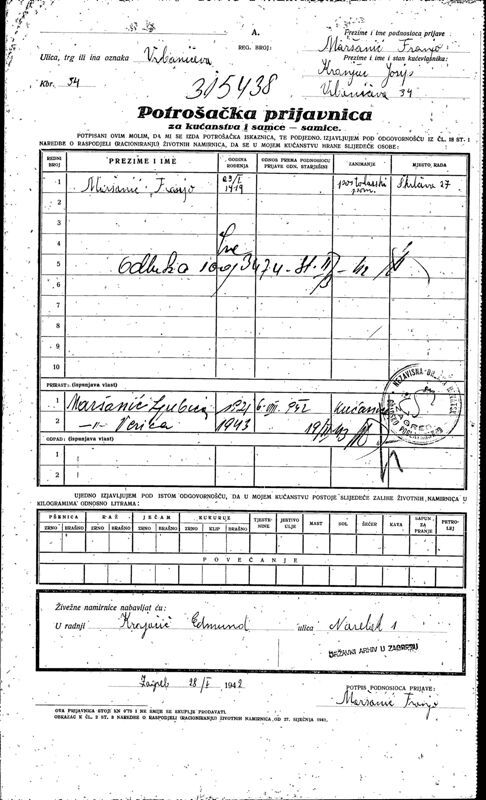 A.
Prezime i ime podnosioca prijave
REG. BROJ:
Maršanić Franjo
Ulica, trg ili ina oznaka Vrbanićeva
Prezime i ime i stan kućevlasnika:
Kbr. 34
315438
Vrbanićeva 34
Potrošačka prijavnica
za kućanstva i samce — samice.
POTPISANI OVIM MOLIM, DA MI SE IZDA POTROŠAČKA ISKAZNICA, TE PODJEDNO IZJAVLJUJEM POD ODGOVORNOŠĆU IZ ČL. 18 ST. 1
NAREDBE O RASPODJELI (RACIONIRANJU) ŽIVOTNIH NAMIRNICA, DA SE U MOJEM KUĆANSTVU HRANE SLIJEDEĆE OSOBE:
REDNI BROJ PREZIME I IME GODINA ROĐENJA ODNOS PREMA PODNOSIOCU PRIJAVE ODN. STARJEŠINI ZANIMANJE MJESTO RADA
1 Maršanić Franjo 1919 27
2
3
4
5 Odluka
6
7
8
9
10
PRIRAST: (ispunjava vlast)
1 Maršanić Ljubica 1921 6. VII. 942 kućanica
2 -"- Verica 1943
OTPAD: (ispunjava vlast)
1
2
UJEDNO IZJAVLJUJEM POD ISTOM ODGOVORNOŠĆU, DA U MOJEM KUĆANSTVU POSTOJE SLIJEDEĆE ZALIHE ŽIVOTNIH NAMIRNICA U
KILOGRAMIMA ODNOSNO LITRAMA:
PŠENICA RAŽ JEČAM KUKURUZ TJESTENINE JESTIVO ULJE MAST SOL ŠEĆER KAVA SAPUN ZA PRANJE PETROLEJ
ZRNO BRAŠNO ZRNO BRAŠNO ZRNO BRAŠNO ZRNO KLIP BRAŠNO
POVEĆANJE
Živežne namirnice nabavljat ću:
U radnji Edmund ulica
DRŽAVNI ARHIV U ZAGREBU
Zagreb 28/I 1942
POTPIS PODNOSIOCA PRIJAVE:
Maršanić Franjo
OVA PRIJAVNICA STOJI KN 0'75 I NE SMIJE SE SKUPLJE PRODAVATI.
OBRAZAC K ČL. 2 ST. 3 NAREDBE O RASPODJELI (RACIONIRANJU) ŽIVOTNIH NAMIRNICA OD 27. SIJEČNJA 1941.